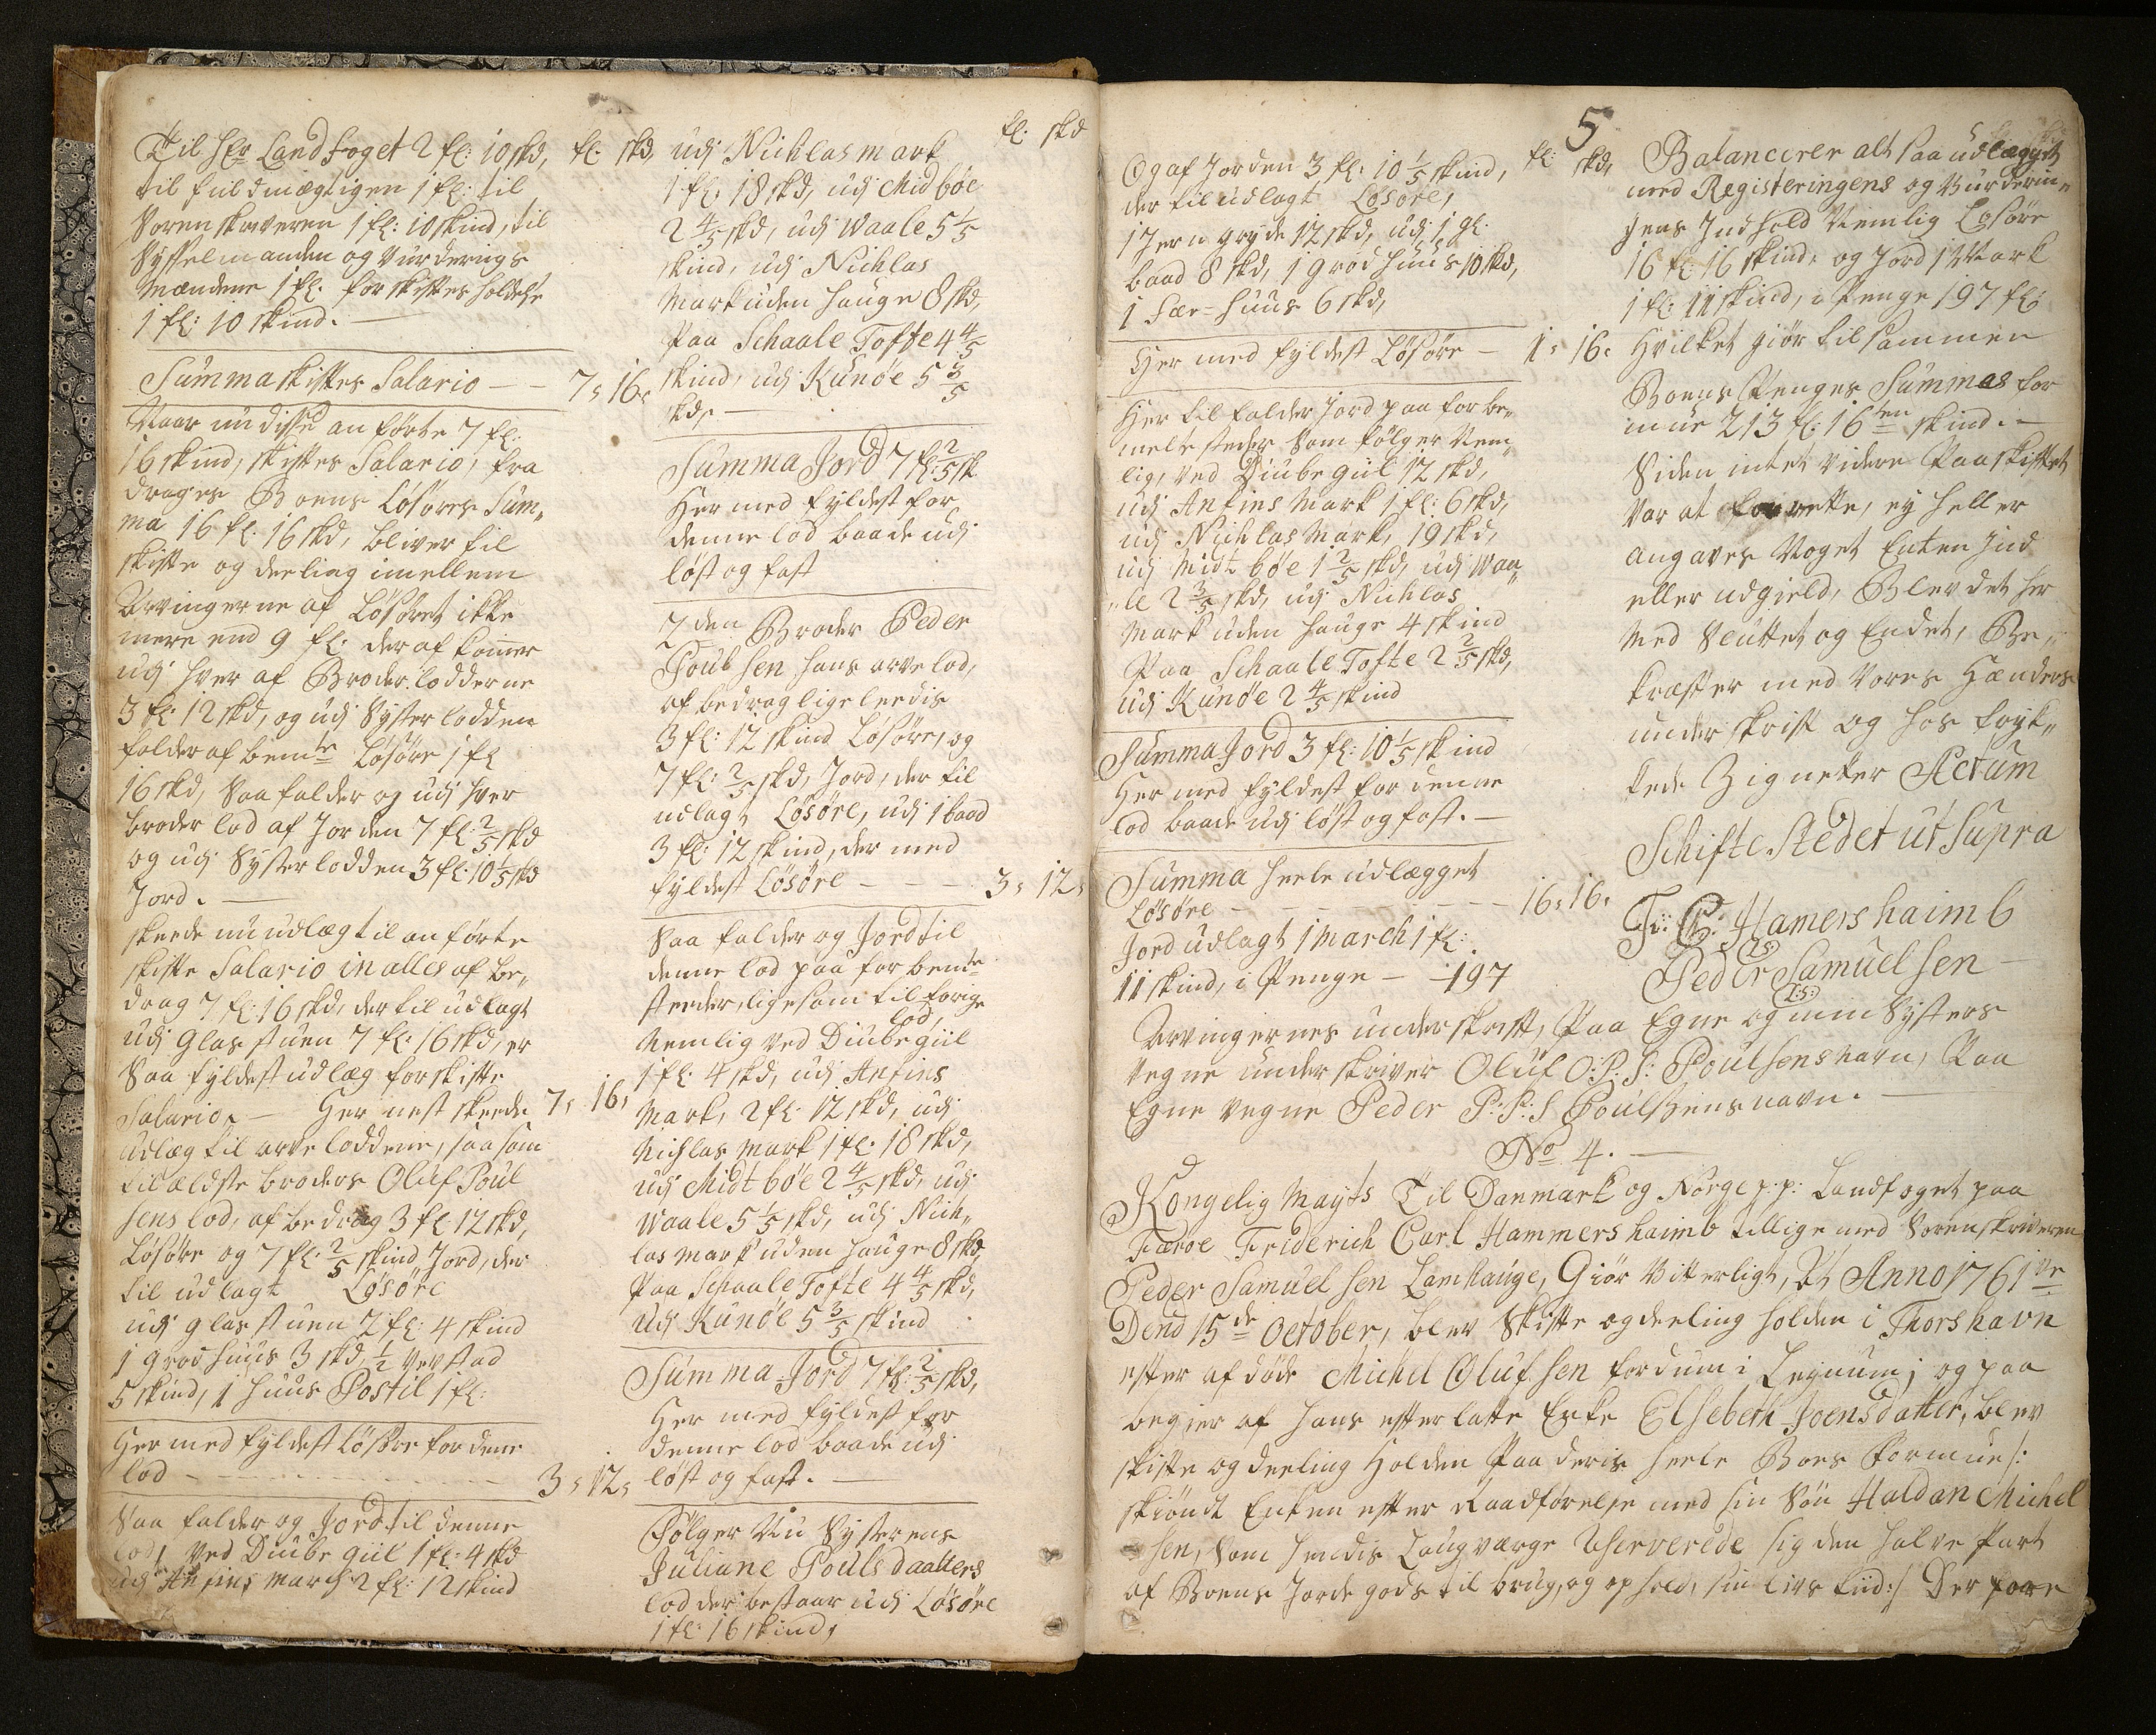 Til Hr Landfoget 2 fl: 10 skd, fl: skd,
til fuldmægtigen 1 fl: til
Sorenskriveren 1 fl: 10 skind, til
Sysselmanden og Vurderings
Mændene 1 fl: for skiftes holdelse
1 fl: 10 skind. —
Summa skiftes Salario — — 7, 16,
Naar nu disse anførte 7 fl:
16 skind, skiftes Salario, fra
drages Boens Løsøres Sum„
ma 16 fl: 16 skd, bliver til
skifte og deeling imellem
Arvingerne af Løsøret ikke
mere end 9 fl: deraf kommer
udj hver af Broder lodderne
3 fl: 12 skd, og udj Syster lodden
falder af bemte Løsøre 1 fl
16 skd, Saa falder og udj hver
broder lod af Jorden 7 fl: 2/5 skd
og udj Syster lodden 3 fl: 10 1/5 skd
Jord. —
skeede nu udlæg til anførte
skifte Salario in alles af be„
drag 7 fl: 16 skd, der til udlagt
udj Glasstuen 7 fl: 16 skd, er
Saa fyldest udlæg for skifte
Salario. — Her nest skeede 7, 16,
udlæg til arve loddene, saa som
til ældste broders Oluf Poul
sens lod, af bedrag 3 fl: 12 skd,
Løsøre og 7 fl: 2/5 skind Jord, der
til udlagt Løsøre
udj glasstuen 2 fl: 4 skind
1 grod huus 3 skd, 1/2 Vevstad
5 skind, 1 huus Postil 1 fl:
Her med fyldest Løsøre for dene
lod — — — 3, 12,
Saa falder og Jord til denne
lod, Ved Diube giil 1 fl: 4 skd
udj Anfins march 2 fl: 12 skind
fl: skd
udj Nichlas mark
1 fl: 18 skd, udj Midbøe
2 4/5 skd, udj Waale 5 1/5
skind, udj Nichlas
Mark uden hauge 8 skd,
Paa Schaale Tofte 4 4/5
skind, udj Kunøe 5 3/5
skd, —
Summa Jord 7 fl: 2/5 sk
Her med fyldest for
denne lod baade udj
løst og fast
7 den Broder Peder
Poulsen hans arvelod,
af bedrag ligeleedis
3 fl: 12 skind Løsøre, og
7 fl: 2/5 skd, Jord, der til
udlagt Løsøre, udj 1 baad
3 fl: 12 skind, der med
fyldest Løsøre — — — 3, 12,
Saa falder og Jord til
denne lod paa for bemte
steder, ligesom til forige
lod,
Nemlig Ved Diube giil
1 fl: 4 skd, udj Anfins
Mark, 2 fl: 12 skd, udj
Nichlas mark 1 fl: 18 skd,
udj Midtbøe 2 4/5 skd, udj
Waale 5 1/5 skd, udj Nich„
las mark uden hauge 8 skd,
Paa Schaale Tofte 4 4/5 skd,
Udj Kunøe 5 3/5 skind
Summa Jord 7 fl: 2/5 skd,
Her med fyldest for
denne lod baade udj
løst og fast. —
Følger Nu Systerens
Juliane Pouls daatters
lod der bestaar udj Løsøre
1 fl: 16 skind,
5
fl: skd,
Og af Jorden 3 fl: 10 1/5 skind,
der til udlagt Løsøre,
1 Jern gryde 12 skd, udj 1 gl:
baad 8 skd, 1 grod huus 10 skd,
1 Fær-huus 6 skd,
Her med fyldest Løsøre — 1, 16,
Her til falder Jord paa for be„
melte steder Som følger Nem„
lig, Ved Diube giil 12 skd,
udj Anfins Mark 1 fl: 6 skd,
udj Nichlas Mark, 19 skd,
udj Midt bøe 1 2/5 skd, udj Waa„
„le 2 3/5 skd, udj Nichlas
Mark uden hauge 4 skind
Paa Schaale Tofte 2 2/5 skd,
udj Kunøe 2 4/5 skind
Summa Jord 3 fl: 10 1/5 skind
Her med fyldest for denne
lod baade udj løst og fast. —
Summa heele udlægget
Løsøre — — — 16, 16,
Jord udlagt 1 march 1 fl:
11 skind, i Penge — — 197
Balancerer alt saa udlægget
med Registeringens og Vurderin„
gens Indhold Nemlig Løsøre
16 fl: 16 skind, og Jord 1 Mark
1 fl: 11 skind, i Penge 197 fl:
Hvilket giør tilsammen
Boens Penges Summas for
mue 213 fl: 16en skind. —
Siden intet videre Paa skiftet
Var at forrette, ey heller
angaves Noget Enten Ind
eller udgield, Blev det her
Med Sluttet og Endet, Be„
kræfter med Vores Hænders
under skrift og hos tryk„
kede Zigneter Actum
Schifte Stedet ut Supra
Fr: C: Hamershaimb
L:S:
Peder Samuelsen —
L:S:
Arvingernes underskrift, Paa Egne og min Systers
Vegne underskriver Oluf O:P:S: Poulsens navn, Paa
Egne Vegne Peder P:P:S Poulsens navn. —
No 4. —
Kongelig Mayts Til Danmark og Norge p:p: Landfoget paa
Færøe Friderich Carl Hammershaimb tillige med Sorenskriveren
Peder Samuelsen Lamhauge, Giør Vitterligt, At Anno 1761
Dend 15de October, blev Skifte og deeling holden i Thorshavn
efter afdøde Michel Olufsen fordum i Legnum; og paa
begier af hans efterlatte Enke Elsebeth Joensdatter, blev
skifte og deeling Holden Paa deris heele Boes Formue /:
skiøndt Enken efter Raadførelse med sin Søn Haldan Michel
sen, Som hendis Laugværge Reserverede sig den halve Part
af Boens Jordegods til brug, og ophold, sin livs tiid :/ Der fore